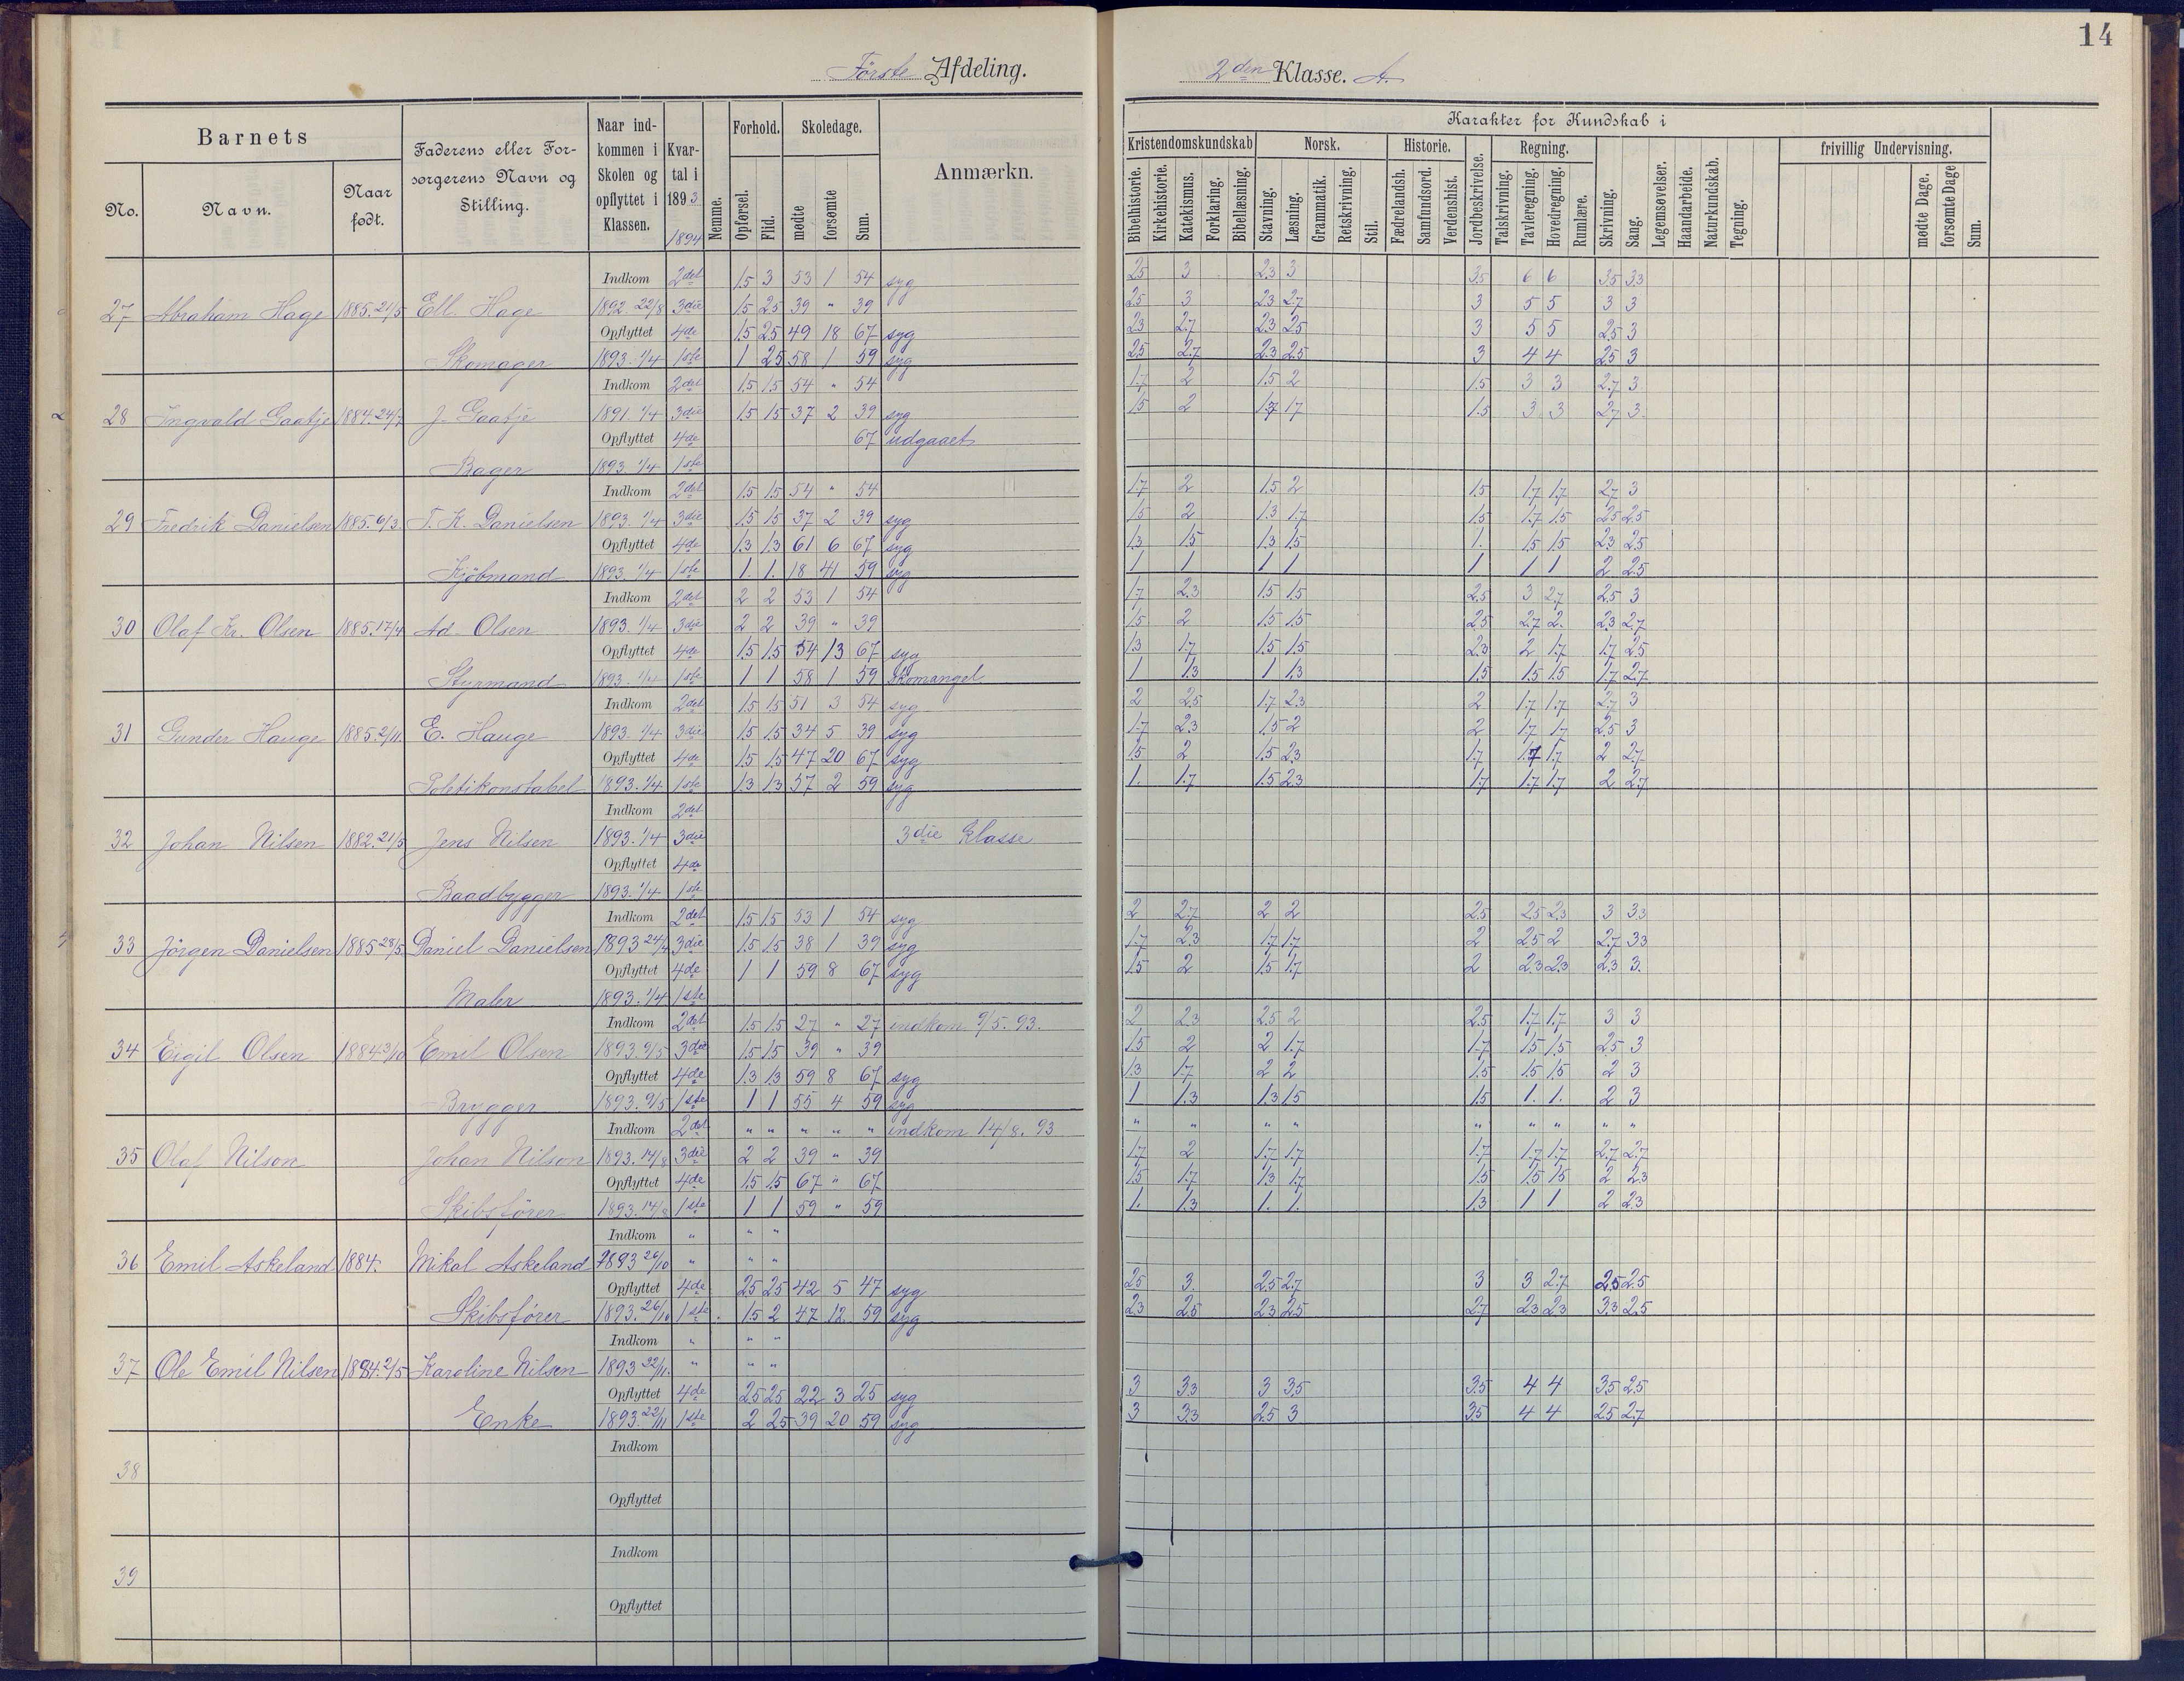 14
Förste Afdeling.
2den Klasse. A.
Barnets
No.
Navn.
Naar født.
Faderens eller Forsørgerens Navn og Stilling.
Naar indkommen i Skolen og opflyttet i Klassen.
Kvartal i 1893 1894
Nemme.
Forhold.
Opførsel.
Flid.
Skoledage.
mødte
forsømte
Sum.
Anmærkn.
Karakter for Kundskab i
Kristendomskundskab
Bibelhistorie.
Kirkehistorie.
Katekismus.
Forklaring.
Bibellæsning.
Norsk.
Stavning.
Læsning.
Grammatik.
Retskrivning.
Stil.
Historie.
Fædrelandsh.
Samfundsord.
Verdenshist.
Jordbeskrivelse.
Regning.
Talskrivning.
Tavleregning.
Hovedregning.
Rumlære.
Skrivning.
Sang.
Legemsøvelser.
Haandarbeide.
Naturkundskab.
Tegning.
frivillig Undervisning.
mødte Dage.
forsømte Dage
Sum.
Indkom 2det 1.5 3 53 1 54 syg 2.5 3 2.3 3 3.5 6 6 3.5 3.3
27 Abraham Hage 1885. 21/5 Ell. Hage 1892. 22/8 3die 1.5 2.5 39 " 39 2.5 3 2.3 2.7 3 5 5 3 3
Opflyttet 4de 1.5 2.5 49 18 67 syg 2.3 2.7 2.3 2.5 3 5 5 2.5 3
Skomager 1893. 1/4 1ste 1 2.5 58 1 59 syg 2.5 2.7 2.3 2.5 3 4 4 2.5 3
Indkom 2det 1.5 1.5 54 " 54 1.7 2 1.5 2 1.5 3 3 2.7 3
28 Ingvald Gaatje 1884. 24/7 J. Gaatje 1891. 1/4 3die 1.5 1.5 37 2 39 syg 1.5 2 1.7 1.7 1.5 3 3 2.7 3
Opflyttet 4de 67 udgaaet
Bager 1893. 1/4 1ste
Indkom 2det 1.5 1.5 54 " 54 1.7 2 1.5 2 1.5 1.7 1.7 2.7 3
29 Fredrik Danielsen 1885. 6/3. T. K. Danielsen 1893. 1/4 3die 1.5 1.5 37 2 39 syg 1.5 2 1.3 1.7 1.5 1.7 1.5 2.5 2.5
Opflyttet 4de 1.3 1.3 61 6 67 syg 1.3 1.5 1.3 1.5 1. 1.5 1.5 2.3 2.5
Kjöbmand 1893. 1/4 1ste 1. 1. 18 41 59 syg 1 1 1 1 1 1 1 2 2.5
Indkom 2det 2 2 53 1 54 1.7 2.3 1.5 1.5 2.5 3 2.7 2.5 3
30 Olaf Kr. Olsen 1885. 17/4 Ad. Olsen 1893. 1/4 3die 2 2 39 " 39 1.5 2 1.5 1.5 2.5 2.7 2. 2.3 2.7
Opflyttet 4de 1.5 1.5 54 13 67 syg 1.3 1.7 1.5 1.5 2.3 2 1.7 1.7 2.5
Styrmand 1893. 1/4 1ste 1 1 58 1 59 Skomangel 1 1.3 1 1.3 1.5 1.5 1.5 1.7 2.7
Indkom 2det 1.5 1.5 51 3 54 syg 2 2.5 1.7 2.3 2 1.7 1.7 2.7 3
31 Gunder Hauge 1885. 2/11. E. Hauge 1893. 1/4 3die 1.5 1.5 34 5 39 syg 1.7 2.3 1.5 2 2 1.7 1.7 2.5 3
Opflyttet 4de 1.5 1.5 47 20 67 syg 1.5 2 1.5 2.3 1.7 1.7 1.7 2 2.7
Politikonstabel 1893. 1/4 1ste 1.3 1.3 57 2 59 syg 1. 1.7 1.5 2.3 1.7 1.7 1.7 2 2.7
Indkom 2det
32 Johan Nilsen 1882. 21/5 Jens Nilsen 1893. 1/4 3die 3die Klasse
Opflyttet 4de
Baadbygger 1893. 1/4 1ste
Indkom 2det 1.5 1.5 53 1 54 syg 2 2.7 2 2 2.5 2.5 2.3 3 3.3
33 Jörgen Danielsen 1885 28/5 Daniel Danielsen 1893 24/4 3die 1.5 1.5 38 1 39 syg 1.7 2.3 1.7 1.7 2 2.5 2 2.7 3.3
Opflyttet 4de 1 1 59 8 67 syg 1.5 2 1.5 1.7 2 2.3 2.3 2.3 3.
Maler 1893. 1/4 1ste
Indkom 2det 1.5 1.5 27 " 27 indkom 9/5. 93. 2 2.3 2.5 2 2.5 1.7 1.7 3 3
34 Eigil Olsen 1884 3/10 Emil Olsen 1893. 9/5 3die 1.5 1.5 39 " 39 1.5 2 2 1.7 1.7 1.5 1.5 2.5 3
Opflyttet 4de 1.3 1.3 59 8 67 syg 1.3 1.7 2 2 1.5 1.5 1.5 2 3
Brygger 1893. 9/5 1ste 1 1 55 4 59 syg 1 1.3 1.3 1.5 1.5 1. 1. 2 3
Indkom 2det " " " " " indkom 14/8. 93 " " " " " " " " "
35 Olaf Nilson Johan Nilson 1893. 14/8 3die 2 2 39 " 39 1.7 2 1.7 1.7 1.7 1.7 1.7 2.7 2.7
Opflyttet 4de 1.5 1.5 67 " 67 1.5 1.7 1.3 1.7 1.5 1.5 1.5 2 2.3
Skibsfører 1893. 14/8 1ste 1 1 59 " 59 1. 1.3 1. 1. 1.3 1 1 2 2.3
Indkom " " "
36 Emil Askeland 1884. Mikal Askeland 1893 26/10 " " "
Opflyttet 4de 2.5 2.5 42 5 47 syg 2.5 3. 2.5 2.7 3 3 2.7 2.5 2.5
Skibsfører 1893. 26/10 1ste 1.5 2 47 12 59 syg 2.3 2.5 2.3 2.5 2.7 2.3 2.3 3.3 2.5
Indkom " " "
37 Ole Emil Nilsen 1884. 2/5 Karoline Nilsen 1893 22/11. " " "
Opflyttet 4de 2.5 2.5 22 3 25 syg 3 3.3 3 3.5 3.5 4 4 3.5 2.5
Enke 1893. 22/11 1ste 2 2.5 39 20 59 syg 3 3.3 2.5 3 3.5 4 4 2.5 2.7
Indkom
38
Opflyttet
Indkom
39
Opflyttet